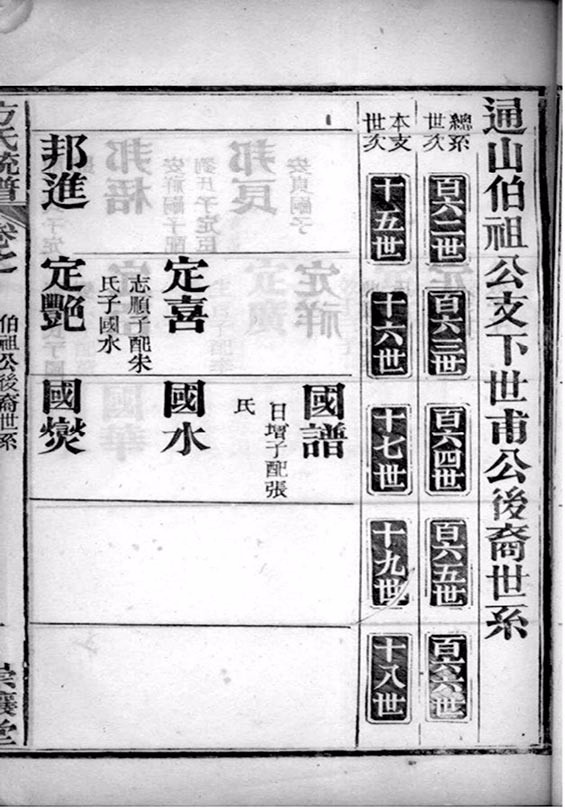 通山伯祖公支下世甫公後裔世系
總系世次
百六二世
百六三世
百六四世
百六五世
百六六世
本支世次
十五世
十六世
十七世
十九世
十八世
國譜
日增子配張
氏
定喜
志順子配朱
氏子國水
國水
邦進
定艷
國爕
方氏統譜
伯祖公後裔世系